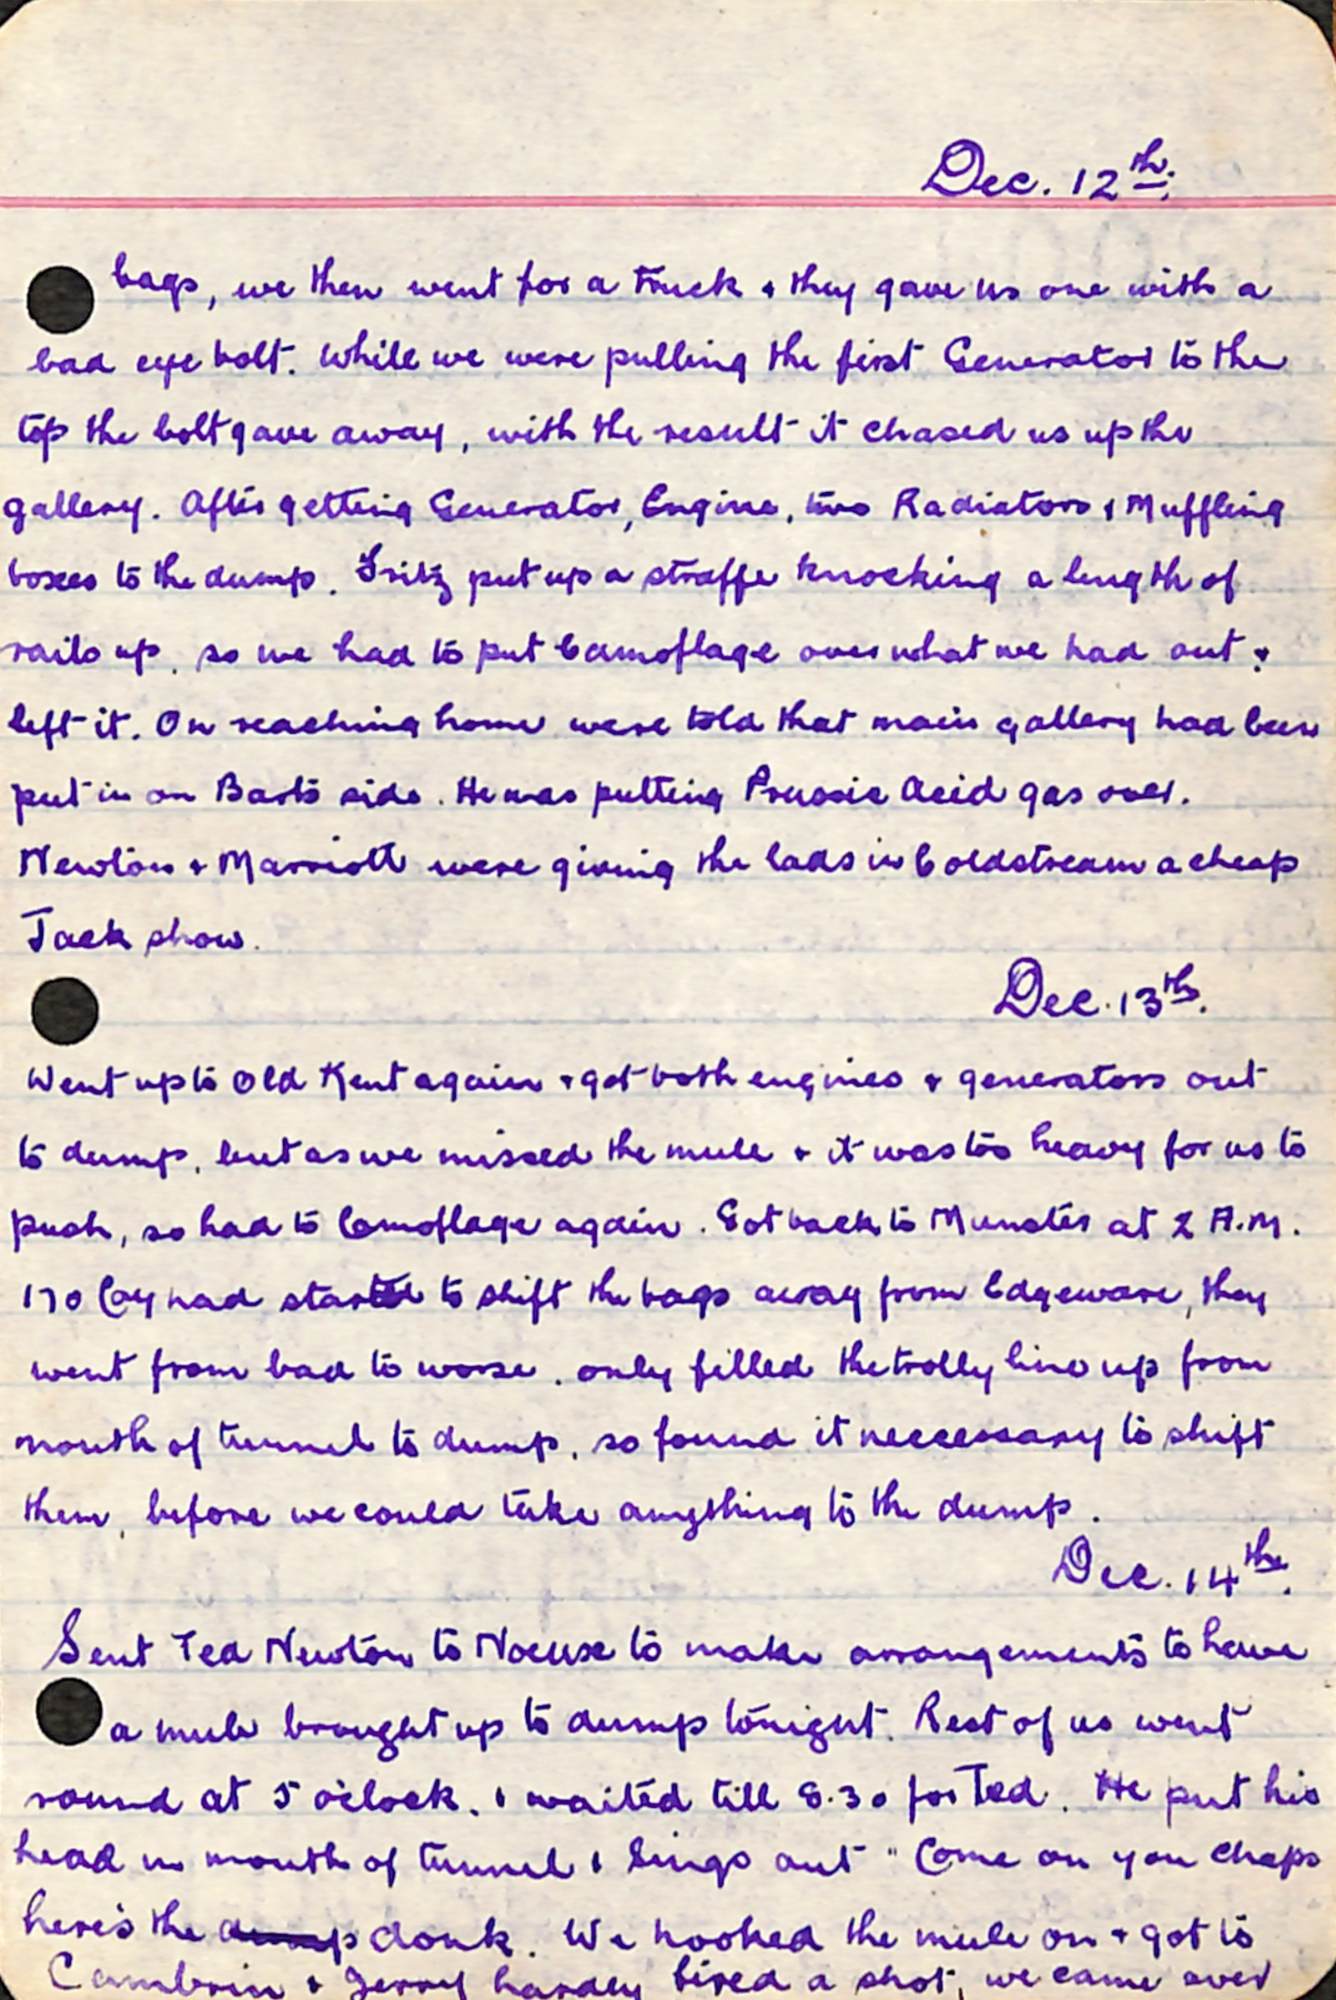 Dec. 12th.
bags, we then went for a truck & they gave us one with a
bad eye bolt. While we were pulling the first Generator to the
top the bolt gave away, with the result it chased us up the
gallery. After getting Generator, Engine, two Radiators & Muffling
boxes to the dump. Fritz put up a straffe knocking a length of
rails up, so we had to put Camoflage over what we had out &
left it. On reaching home were told that main gallery had been
put in on Barts side. He was putting Prussic Acid gas over.
Newton & Marriott were giving the lads in Coldstream a cheap
Jack show.
Dec. 13th.
Went up to Old Kent again & got both engines & generators out
to dump, but as we missed the mule & it was too heavy for us to
push, so had to Camoflage again. Got back to Munster at 2 A.M.
170 Coy had started to shift the bags away from Edgeware, they
went from bad to worse, only filled the trolly line up from
mouth of tunnel to dump, so found it neccessary to shift
them, before we could take anything to the dump.
Dec. 14th.
Sent Ted Newton to Noeuxe to make arrangements to have
a mule brought up to dump tonight. Rest of us went
round at 5 o'clock. & waited till 8.30 for Ted. He put his
head in mouth of tunnel & sings out "Come on you chaps
here's the dump donk. We hooked the mule on & got to
Cambrin & Jerry hardly fired a shot, we came over